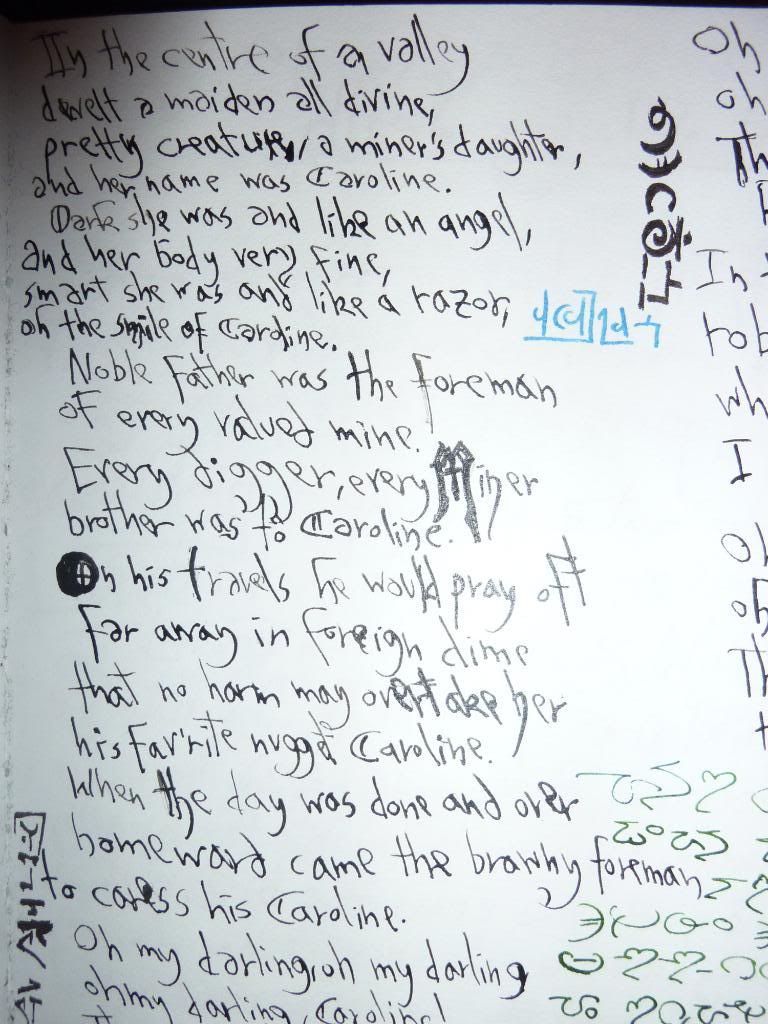 In the centre of a valley
dwelt a maiden all divine,
pretty creature, a miner's daughter,
and her name was Caroline.
Dark she was and like an angel,
and her body very fine,
smart she was and like a razor,
oh the smile of Caroline.
Noble Father was the foreman
of every valued mine.
Every digger, every miner
brother was to Caroline.
On his travels he would pray oft
far away in foreign clime
that no harm may overtake her
his fav'rite nugget Caroline.
When the day was done and over
homeward came the brawny foreman,
to caress his Caroline.
Oh my darling, oh my darling
oh my darling, Caroline!
Oh
oh
Th
In
rob
wh
I
Oh
oh
Th